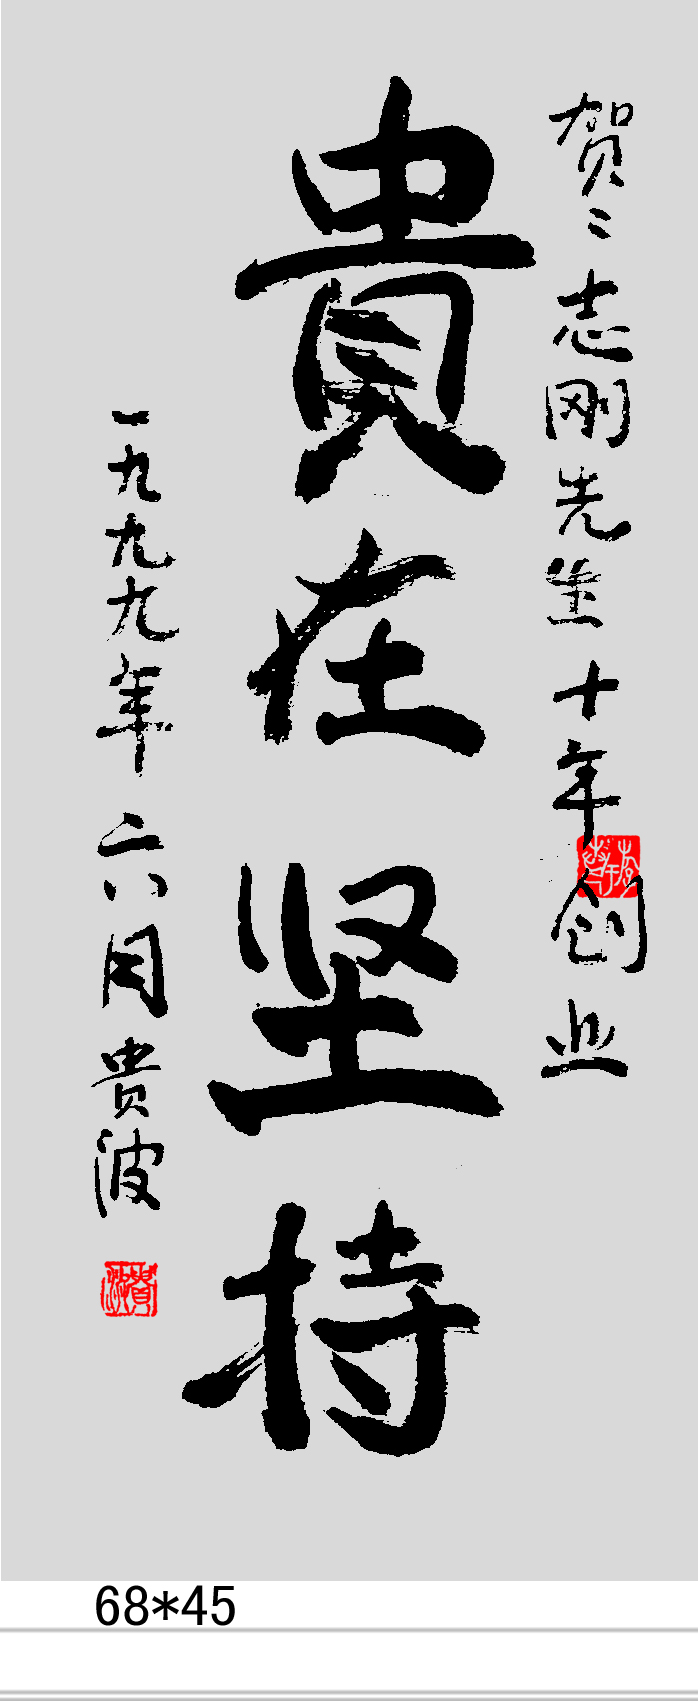 贺：志刚先生十年创业
貴在坚持
一九九九年六月貴波
68*45